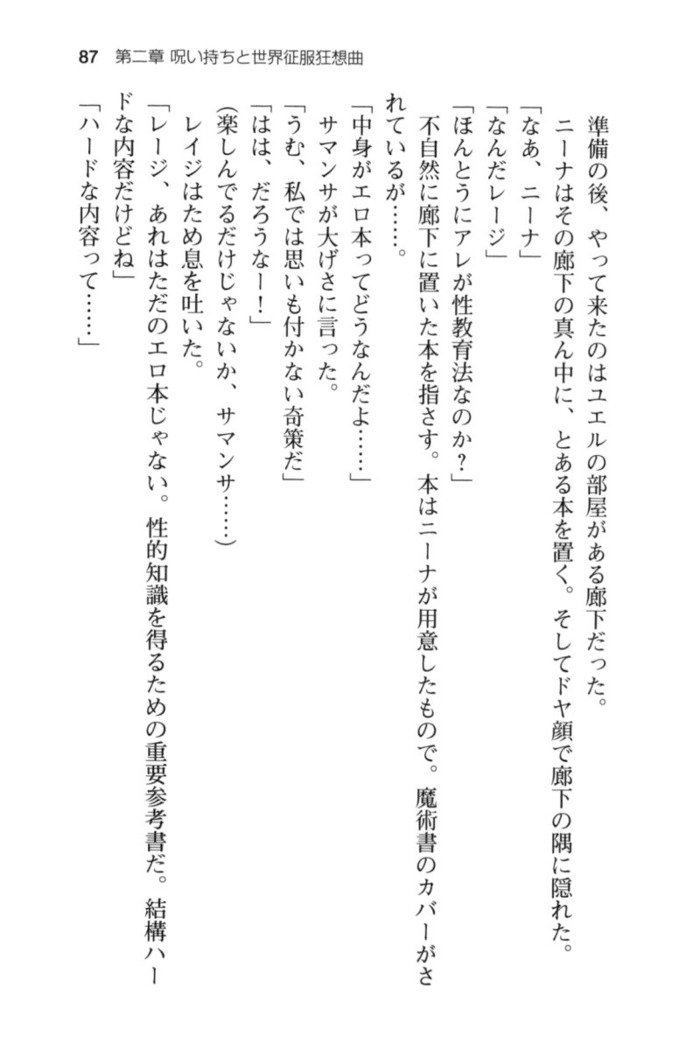 87 第二章 呪い持ちと世界征服狂想曲
準備の後、やって来たのはユエルの部屋がある廊下だった。
ニーナはその廊下の真ん中に、とある本を置く。そしてドヤ顔で廊下の隅に隠れた。
「なあ、ニーナ」
「なんだレージ」
「ほんとうにアレが性教育法なのか？」
不自然に廊下に置いた本を指さす。本はニーナが用意したもので。魔術書のカバーがさ
れているが……。
「中身がエロ本ってどうなんだよ……」
サマンサが大げさに言った。
「うむ、私では思いも付かない奇策だ」
「はは、だろうなー！」
(楽しんでるだけじゃないか、サマンサ……)
レイジはため息を吐いた。
「レージ、あれはただのエロ本じゃない。性的知識を得るための重要参考書だ。結構ハー
ドな内容だけどね」
「ハードな内容って……」